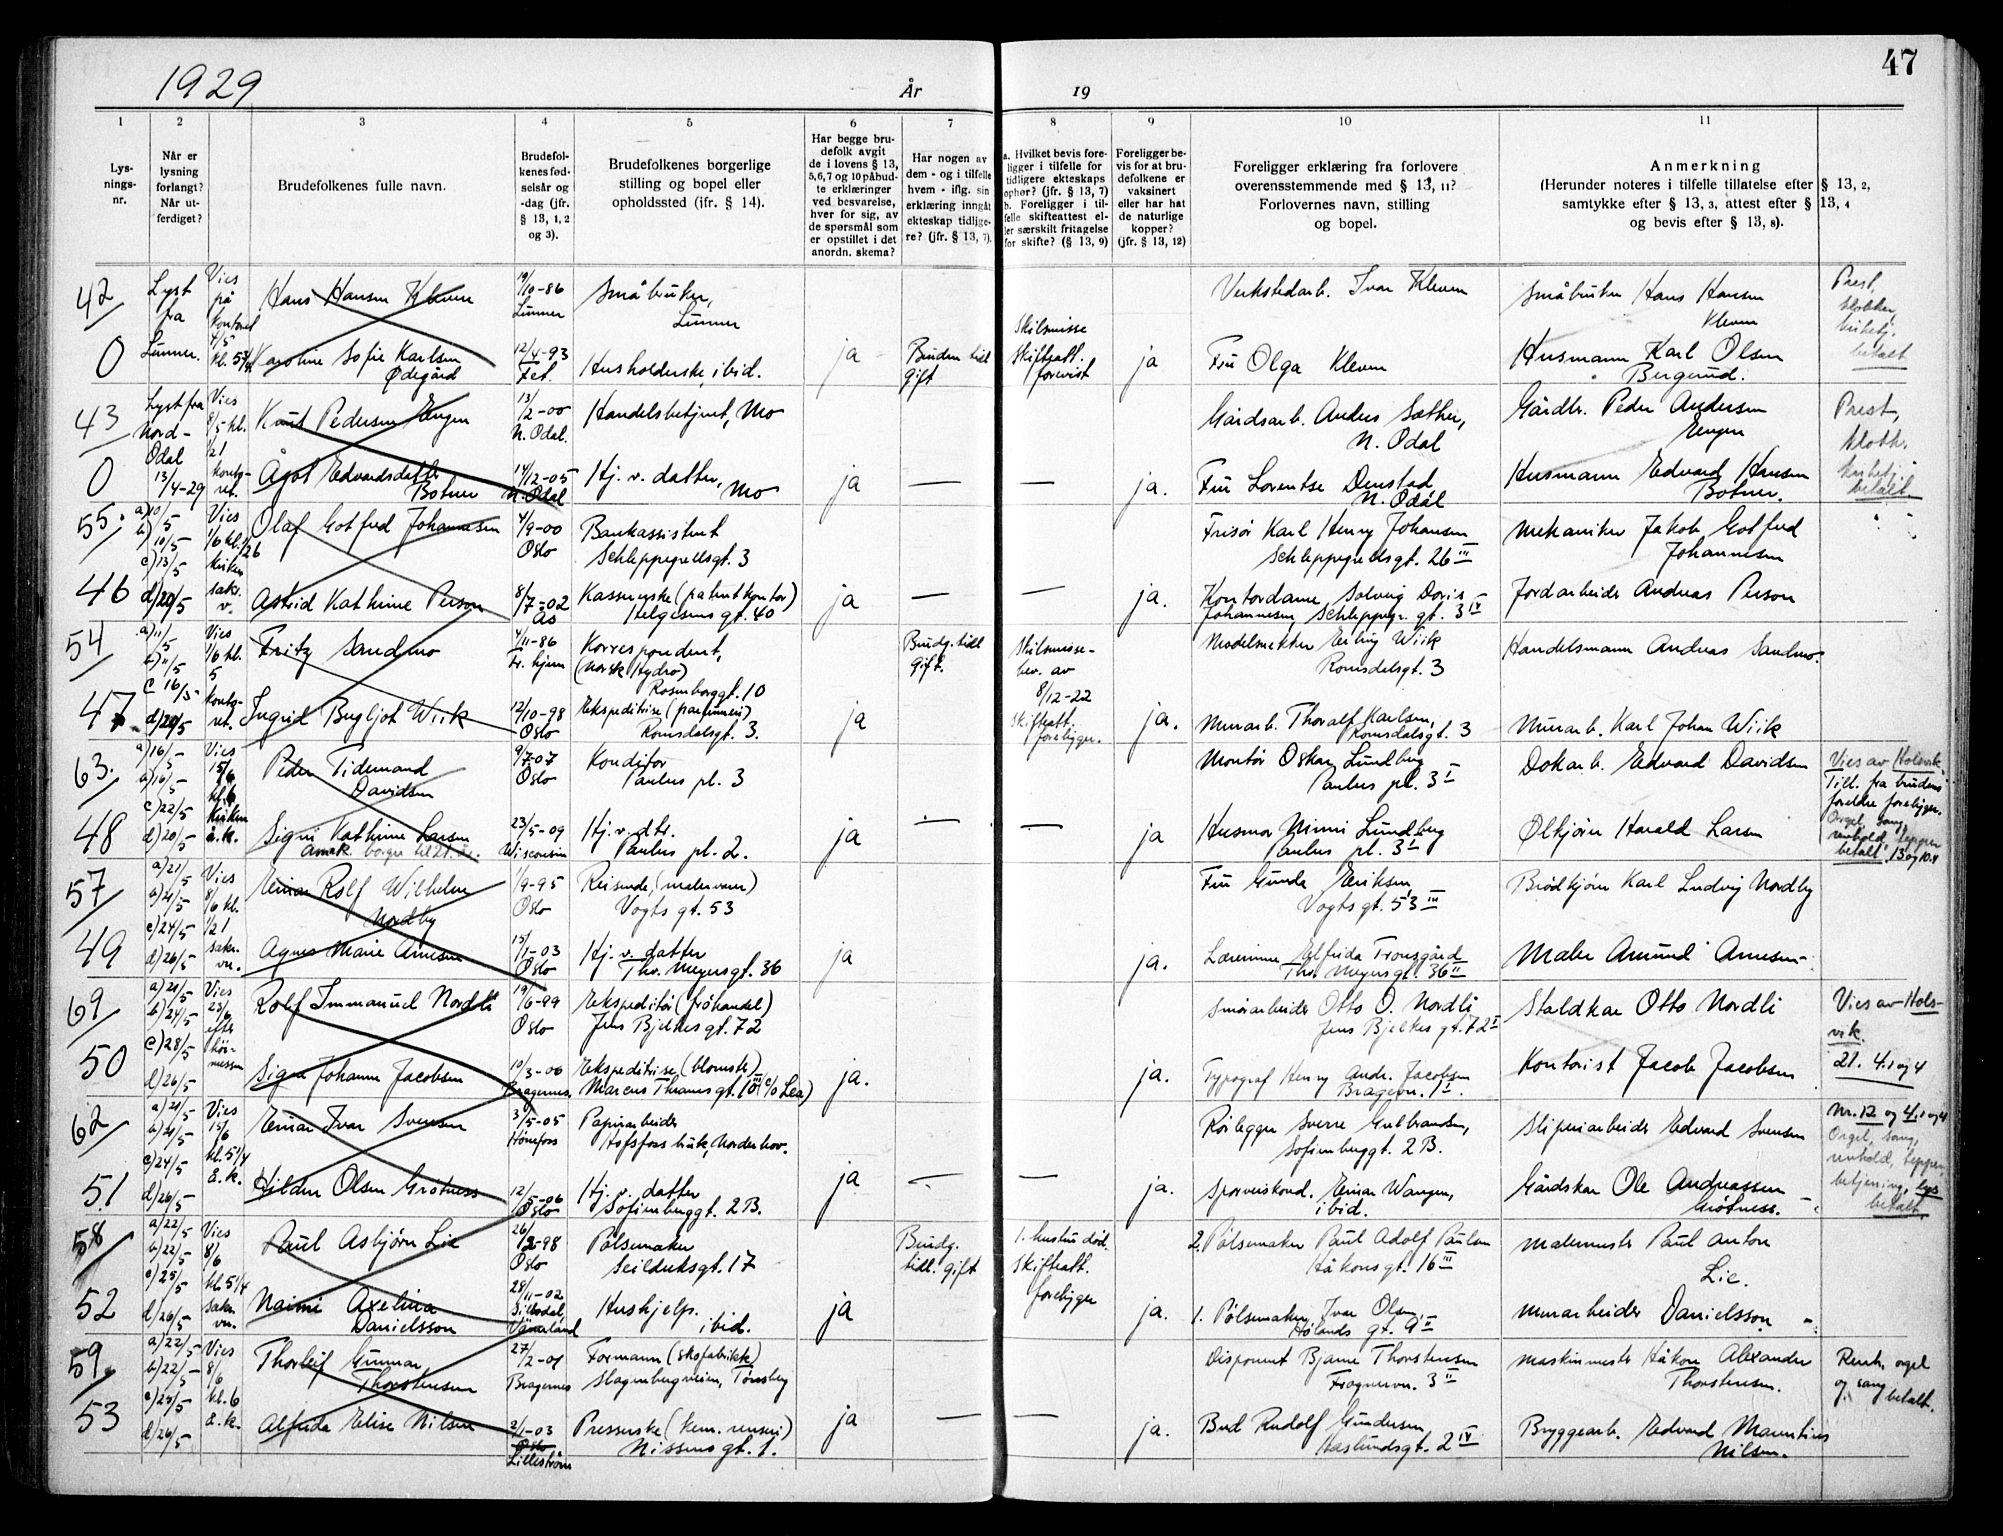 1929
År
19
47
1
2
3
4
5
6
7
8
9
10
11
Lys-
nings-
nr.
Når er
lysning
forlangt?
Når ut-
ferdiget?
Brudefolkenes fulle navn.
Brudefol-
kenes fød-
selsår og
-dag (jfr.
§ 13, 1, 2
og 3).
Brudefolkenes borgerlige
stilling og bopel eller
opholdssted (ifr. § 14).
Har begge bru-
defolk avgit
de i lovens § 13,
5,6,7 og 10 påbud-
te erklæringer
ved besvarelse,
hver for sig, av
de spørsmål som
er opstillet i det
anordn. skema?
Har nogen av
dem - og i tilfelle
hvem - iflg. sin
erklæring inngåt
ekteskap tidlige-
re? (jfr. § 13, 7).
a. Hvilket bevis fore-
ligger i tilfelle for
tidligere ekteskaps
ophør? (jfr. § 13, 7)
b. Foreligger i til-
felle skifteattest el-
ler særskilt fritagelse
for skifte? (§ 13, 9)
Foreligger be-
vis for at bru-
defolkene er
vaksinert
eller har hat
de naturlige
kopper?
(jfr. § 13, 12)
Foreligger erklæring fra forlovere
overensstemmende med § 13, 11?
Forlovernes navn, stilling
og bopel.
Anmerkning
(Herunder noteres i tilfelle tillatelse efter § 13, 2,
samtykke efter § 13, 3, attest efter § 13, 4
og bevis efter § 13, 8).
42
Lyst
fra
Lunner.
Vies
på
kontoret
4/5
Hans Hansen Kleven
19/10-86
Lunner
Småbruker,
Lunner
Verkstedarb. Ivar Kleven
Småbruker Hans Hansen
Kleven
Prest,
klokker,
kirketj.
betalt
0
Karoline Sofie Karlsen
Ødegård
12/4-93
Fet.
Husholderske, ibid.
ja
Bruden tidl
gift
Skilsmisse
Skifteatt.
forevist
ja
Fru Olga Kleven
Husmann Karl Olsen
Bergerud.
43
Lyst fra
Nord-
Odal
13/4-29
Vies
8/5 kl.
1/2 1
konto-
ret.
Knut Pedersen Engen
13/2-00
N. Odal.
Handelsbetjent, Mo
Gårdsarb. Anders Sæther,
N. Odal
Gårdbr. Peder Andersen
Engen
Prest,
klokk.
kirketj.
betalt
0
Ågot Edvardsdatter
Botner
14/12-05
N. Odal
Hj. v. datter, Mo
ja
—
—
ja.
Fru Lorentse Denstad
N. Odal
Husmann Edvard Hansen
Botner.
55.
a) 10/5
b) 10/5
c) 13/5
d) 20/5
Vies
1/6 kl. 1/2 6
kirken
sakr.
v.
Olaf Gotfred Johannesen
4/9-00
Oslo
Bankassistent
Schleppegrellsgt. 3
Frisør Karl Henry Johansen
Schleppegrellsgt. 26 III
Mekaniker Jakob Gotfred
Johannesen
46
Astrid Kathrine Person
8/7-02
Ås
Kassererske (patentkontor)
Helgesens gt. 40
ja
—
—
ja.
Kontordame Solveig Doris
Johannesen, Schleppegr. gt. 3 IV
Jordarbeider Andreas Person
54
a) 11/5
b) 11/5
c 16/5
d) 20/5
Vies
1/6 kl.
5
konto-
ret.
Fritz Sandmo
4/11-86
Tr. hjem
Korrespondent,
(Norsk Hydro)
Rosenborggt. 10
Brudg. tidl
gift.
Skilsmisse-
bev. av
8/12-22
Skifteatt.
foreligger.
Modelsnekker Erling Wiik
Romsdalsgt. 3
Handelsmann Andreas Sandmo.
47
Ingrid Bergljot Wiik
12/10-98
Oslo
Ekspeditrise (parfumeri)
Romsdalsgt. 3.
ja
ja.
Murarb. Thoralf Karlsen,
Romsdalsgt. 3
Murarb. Karl Johan Wiik
63.
a) 16/5
b) 16/5
c) 22/5
d) 20/5
Vies
15/6
kl. 6
Kirken
o. k.
Peder Tidemand
Davidsen
9/7-07
Oslo
Konditor
Paulus pl. 3
Montør Oskar Lundberg
Paulus pl. 3 I
Dokarb. Edvard Davidsen
Vies av Holsvik.
Till. fra brudens
foreldre foreligger.
Orgel, sang
renhold, tepper
betalt. 13 og 10.4
48
Signi Kathrine Larsen
23/5-09
Wisconsin
Hj. v. dtr.
Paulus pl. 2.
ja
—
—
ja
Husmor Mimi Lundberg
Paulus pl. 3 I
Ølkjører Harald Larsen
57
a) 21/5
b) 21/5
c) 24/5
d) 26/5
Vies
8/6 kl.
1/2 1
sakr.
Einar Rolf Wilhelm
Nordby
1/9-95
Oslo
Reisende, (malervarer)
Vogts gt. 53
Fru Gunda Eriksen
Vogts gt. 53 III
Brødkjører Karl Ludvig Nordby
49
Agnes Marie Arnesen
15/1-03
Oslo
Hj. v. datter
Thv. Meyersgt. 36
ja
ja.
Lærerinne Elfrida Tronsgård
Thv. Meyersgt. 36 II
Maler Amund Arnesen
69
a) 21/5
b) 24/5
c) 28/5
d) 26/5
Vies
23/6
efter
høi-
messen
Rolf Immanuel Nordli
19/6-99
Oslo
Ekspeditør (frøhandel)
Jens Bjelkes gt. 72
Smørarbeider Otto O. Nordli
Jens Bjelkes gt. 72 I
Staldkar Otto Nordli
Vies av Hols-
vik.
21. 4.1 og 4
50
Signe Johanne Jacobsen
10/3-00
Bragernes.
Ekspeditrise (blomster)
Marcus Thranes gt. 10 III c/o Lea)
ja.
ja.
Typograf Henry Andr. Jacobsen
Kontorist Jacob Jacobsen
62
a) 21/5
b) 21/5
c) 24/5
d) 26/5
Vies
15/6
kl. 5 1/4
Einar Ivar Svensen
3/5-05
Hønefoss
Papirarbeider
Hofsfoss bruk, Norderhov.
Rørlegger Sverre Gulbrandsen,
Sofienberggt. 2 B.
Sliperiarbeider Edvard Svensen
Nr. 12 og 4.1 og 4
Orgel, sang,
renhold, tepper
betjening, lys
betalt.
51
Hildur Olsen Grøtness
12/5-06
Oslo
Hj. v. datter
Sofienberggt. 2 B.
ja
—
—
ja.
Sporveiskond. Einar Wangen,
ibid.
Gårdskar Ole Andreassen
Grøtness.
58
a) 22/5
b) 22/5
c) 25/5
d) 26/5
Vies
8/6
kl. 5 1/4
sakr.
Paul Asbjørn Lie
26/2-98
Oslo
Pølsemaker
Seilduksgt. 17
Brudg.
tidl. gift
1. hustru død.
Skifteatt.
foreligger
2. Pølsemaker Paul Adolf Paulsen
Håkonsgt. 16 III
Malermester Paul Anton
Lie.
52
Naimi Axelina
Danielsson
28/11-02
Vänerland
Hushjelp.
ibid.
ja
ja.
1. Pølsemaker Ivar Olsen
Hølands gt. 9 II
Murarbeider Danielsson
59.
a) 22/5
b) 22/5
c) 25/5
d) 26/5
Vies
8/6
kl. 6
Thorleif Gunnar
Thorstensen
27/2-01
Bragernes
Formann (skofabrikk)
Slagenbergveien, Tønsberg
Disponent Bjarne Thorstensen
Frognervn. 3 II
Maskinmester Håkon Alexander
Thorstensen.
Renh. orgel
og sang betalt.
53
Alfrida Elise Nilsen
2/1-03
Oslo
Lillestrøm
Presserske (kem. renseri)
Nissens gt. 1.
ja
—
—
ja.
Bud Rudolf Gundersen
Aaslundsgt. 2 IV
Bryggearb. Edvard Mauritius
Nilsen.